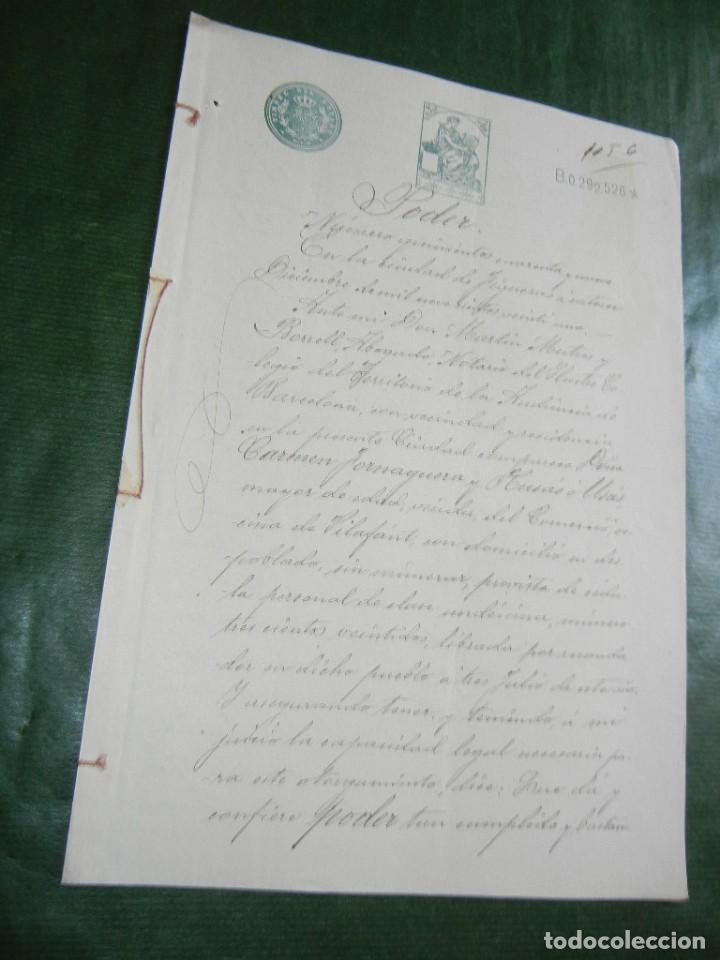 TIMBRE DEL ESTADO
1056
B.0.292,526 ✶
Poder.
Número quinientos cuarenta y uno
En la ciudad de Figueras á catorce
Diciembre de mil novecientos veinti uno.—
Ante mí Don Martín Mestres y
Borrell, Abogado, Notario del Ilustre Co-
legio del Territorio de la Audiencia de
Barcelona, con vecindad y residencia
en la presente Ciudad comparece Doña
Carmen Jornaguera y Ó Usás,
mayor de edad, viuda, del Comercio, ve-
cina de Vilafant, con domicilio en des-
poblado, sin numerar, provista de cédu-
la personal de clase undécima, número
tres cientos veintidos, librada por
en dicho pueblo a tres Julio de este año
Y asegurando tener, y teniendo, á mi
juicio la capacidad legal necesaria pa-
ra este otorgamiento, dice: Que dá y
confiere poder tan cumplido y bastan
todocoleccion